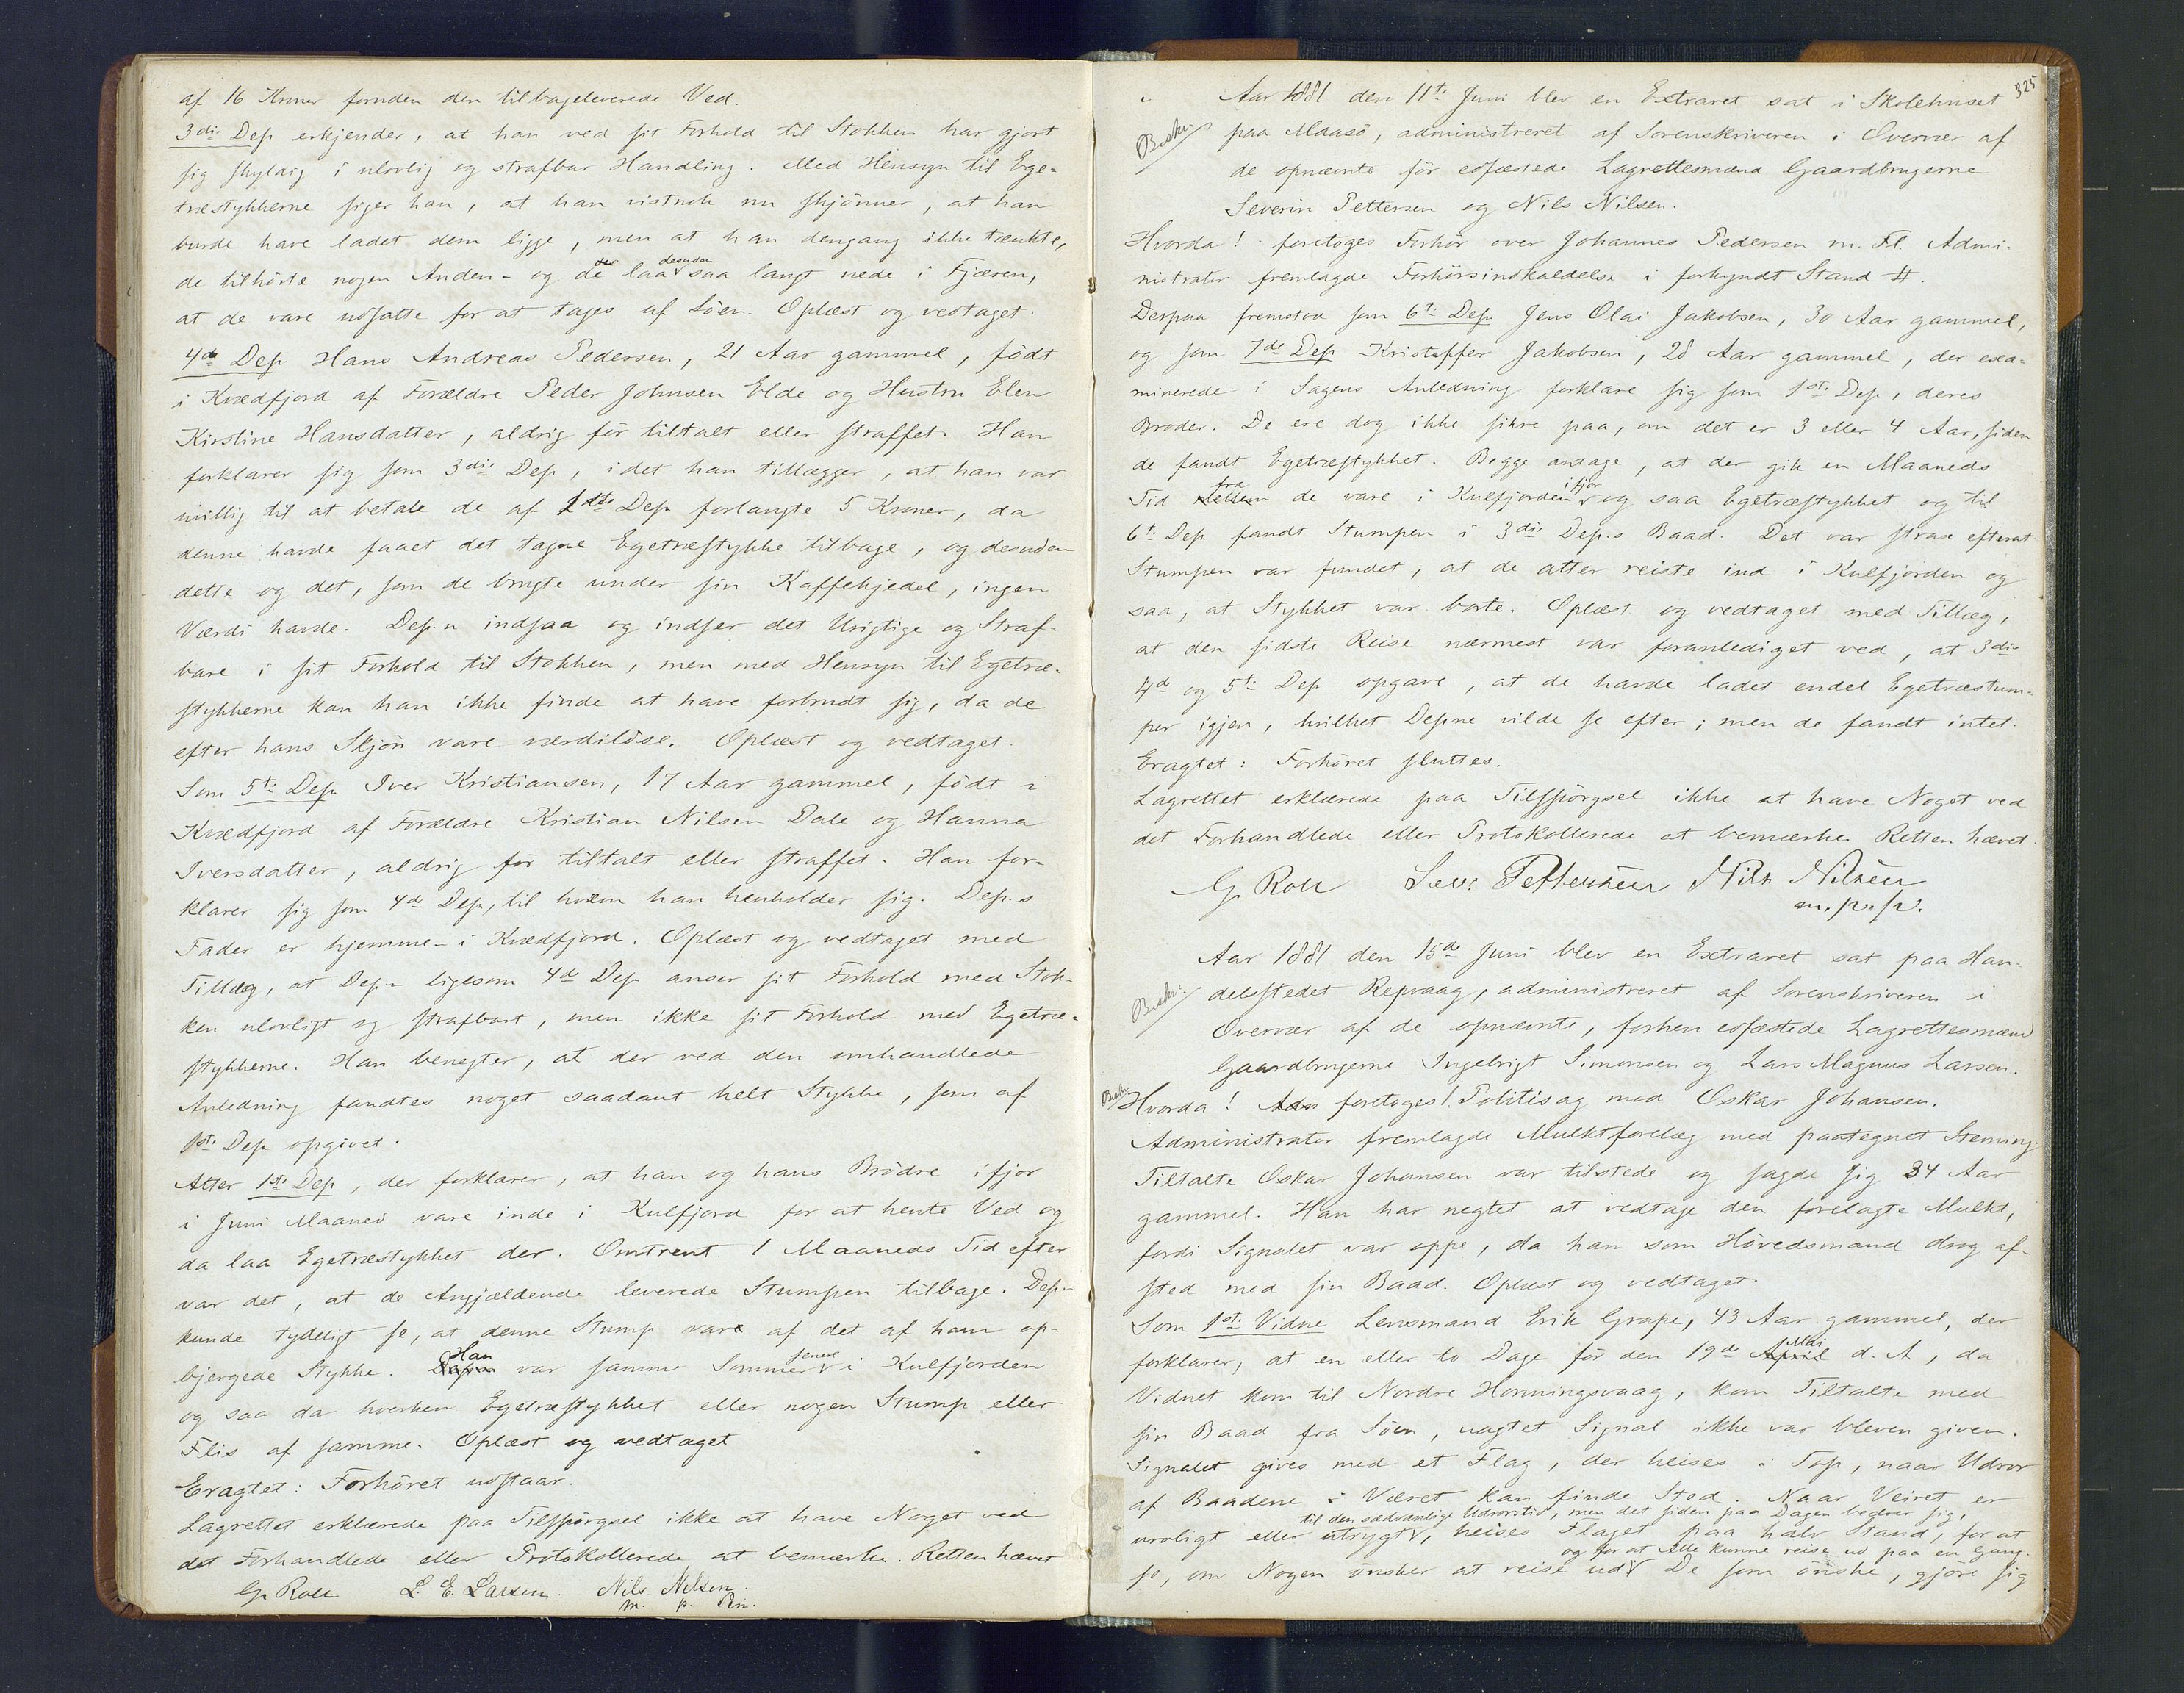 af 16 Kroner foruden den tilbageleverede Ved.
3die Dep erkjender, at han ved sit Forhold til Stokken har gjort
sig skyldig i ulovlig og strafbar Handling. Med Hensyn til Ege-
træstykkerne siger han, at han vistnok nu skjönner, at han
burde have ladet dem ligge, men at han dengang ikke tænkte,
de tilhörte nogen Anden - og de laa desuden saa langt nede i Fjæren,
at de vare udsatte for at tages af Söen. Oplæst og vedtaget.
4de Dep Hans Andreas Pedersen, 21 Aar gammel, födt
i Kvædfjord af Forældre Peder Johnsen Elde og Hustru Elen
Kirstine Hansdatter, aldrig för tiltalt eller straffet. Han
forklarer sig som 3die Dep, idet han tillægger, at han var
villig til at betale de af 1ste Dep forlangte 5 Kroner, da
denne havde faaet det tagne Egetræstykke tilbage, og desuden
dette og det, som de brugte under sin Kaffekjedel, ingen
Værdi havde. Dep.n indsaa og indser det Urigtige og Straf-
bare i sit Forhold til Stokken, men med Hensyn til Egetræ-
stykkerne kan han ikke finde at have forbrudt sig, da de
efter hans Skjön vare værdilöse. Oplæst og vedtaget.
Som 5te Dep Iver Kristiansen, 17 Aar gammel, födt i
Kvædfjord af Forældre Kristian Nilsen Dale og Hanna
Iversdatter, aldrig för tiltalt eller straffet. Han for-
klarer sig som 4de Dep, til hvem han henholder sig. Dep.s
Fader er hjemme i Kvædfjord. Oplæst og vedtaget med
Tillæg, at Dep.n ligesom 4de Dep anser sit Forhold med Stok-
ken ulovligt og strafbart, men ikke sit Forhold med Egetræ-
stykkerne. Han benegter, at der ved den omhandlede
Anledning fandtes noget saadant helt Stykke, som af
1ste Dep opgivet.
Atter 1ste Dep, der forklarer, at han og hans Brödre ifjor
i Juni Maaned vare inde i Kulfjord for at hente Ved og
da laa Egetræstykket der. Omtrent 1 Maaneds Tid efter
var det, at de Angjældende leverede Stumpen tilbage. Dep.n
kunde tydeligt se, at denne Stump vare af det af ham op-
bjergede Stykke. Han var samme Sommer senere i Kulfjorden
og saa da hverken Egetræstykket eller nogen Stump eller
Flis af samme. Oplæst og vedtaget
Eragtet: Forhöret udstaar.
Lagrettet erklærede paa Tilspörgsel ikke at have Noget ved
det Forhandlede eller Protokollerede at bemærke. Retten hævet
G. Roll L. E. Larsen. Nils Nilsen.
m. p. Pn.
325
Aar 1881 den 11te Juni blev en Extraret sat i Skolehuset
Beskr.
paa Maasö, administreret af Sorenskriveren i Overvær af
de opnævnte för edfæstede Lagrettesmænd Gaardbrugerne
Severin Pettersen og Nils Nilsen.
Hvorda! foretoges Forhör over Johannes Pedersen m. Fl. Admi-
nistrator fremlagde Forhörsindkaldelse i forkyndt Stand #.
Derpaa fremstod som 6te Dep Jens Olai Jakobsen, 30 Aar gammel,
og som 7de Dep Kristoffer Jakobsen, 28 Aar gammel, der exa-
minerede i Sagens Anledning forklare sig som 1ste Dep, deres
Broder. De ere dog ikke sikre paa, om det er 3 eller 4 Aar, siden
de fandt Egetræstykket. Begge antage, at der gik en Maaneds
Tid fra de vare i Kulfjorden ifjor og saa Egetræstykket og til
6te Dep fandt Stumpen i 3die Dep.s Baad. Det var strax efterat
Stumpen var fundet, at de atter reiste ind i Kulfjorden og
saa, at Stykket var borte. Oplæst og vedtaget med Tillæg,
at den sidste Reise nærmest var foranlediget ved, at 3die
4de og 5te Dep opgave, at de havde ladet endel Egetræstum-
per igjen, hvilket Depne vilde se efter; men de fandt intet.
Eragtet: Forhöret sluttes.
Lagrettet erklærede paa Tilspörgsel ikke at have Noget ved
det Forhandlede eller Protokollerede at bemærke. Retten hævet.
G. Roll Sev: Pettersen Nils Nilsen
m. p. p.
Aar 1881 den 15de Juni blev en Extraret sat paa Han-
Beskr.
delsstedet Repvaag, administreret af Sorenskriveren i
Overvær af de opnævnte, forhen edfæstede Lagrettesmænd
Gaardbrugerne Ingebrigt Simonsen og Lars Magnus Larsen.
Beskr.
Hvorda! foretoges! Politisag mod Oskar Johansen.
Administrator fremlagde Mulktforelæg med paategnet Stævning.
Tiltalte Oskar Johansen var tilstede og sagde sig 34 Aar
gammel. Han har negtet at vedtage den forelagte Mulkt,
fordi Signalet var oppe, da han som Hövedsmand drog af-
sted med sin Baad. Oplæst og vedtaget.
Som 1ste Vidne Lensmand Erik Grape, 43 Aar gammel, der
forklarer, at en eller to Dage för den 19de Mai d. A, da
Vidnet kom til Nordre Honningsvaag, kom Tiltalte med
sin Baad fra Söen, uagtet Signal ikke var bleven given.
Signalet gives med et Flag, der heises i Top, naar Udror
af Baadene i Været kan finde Sted. Naar Veiret er
til den sædvanlige Udrorstid, men det siden paa Dagen bedrer sig,
uroligt eller utrygt, heises Flaget paa halv Stand, for at
og for at Alle kunne reise ud paa en Gang.
se, om Nogen önsker at reise ud De som önske, gjöre sig